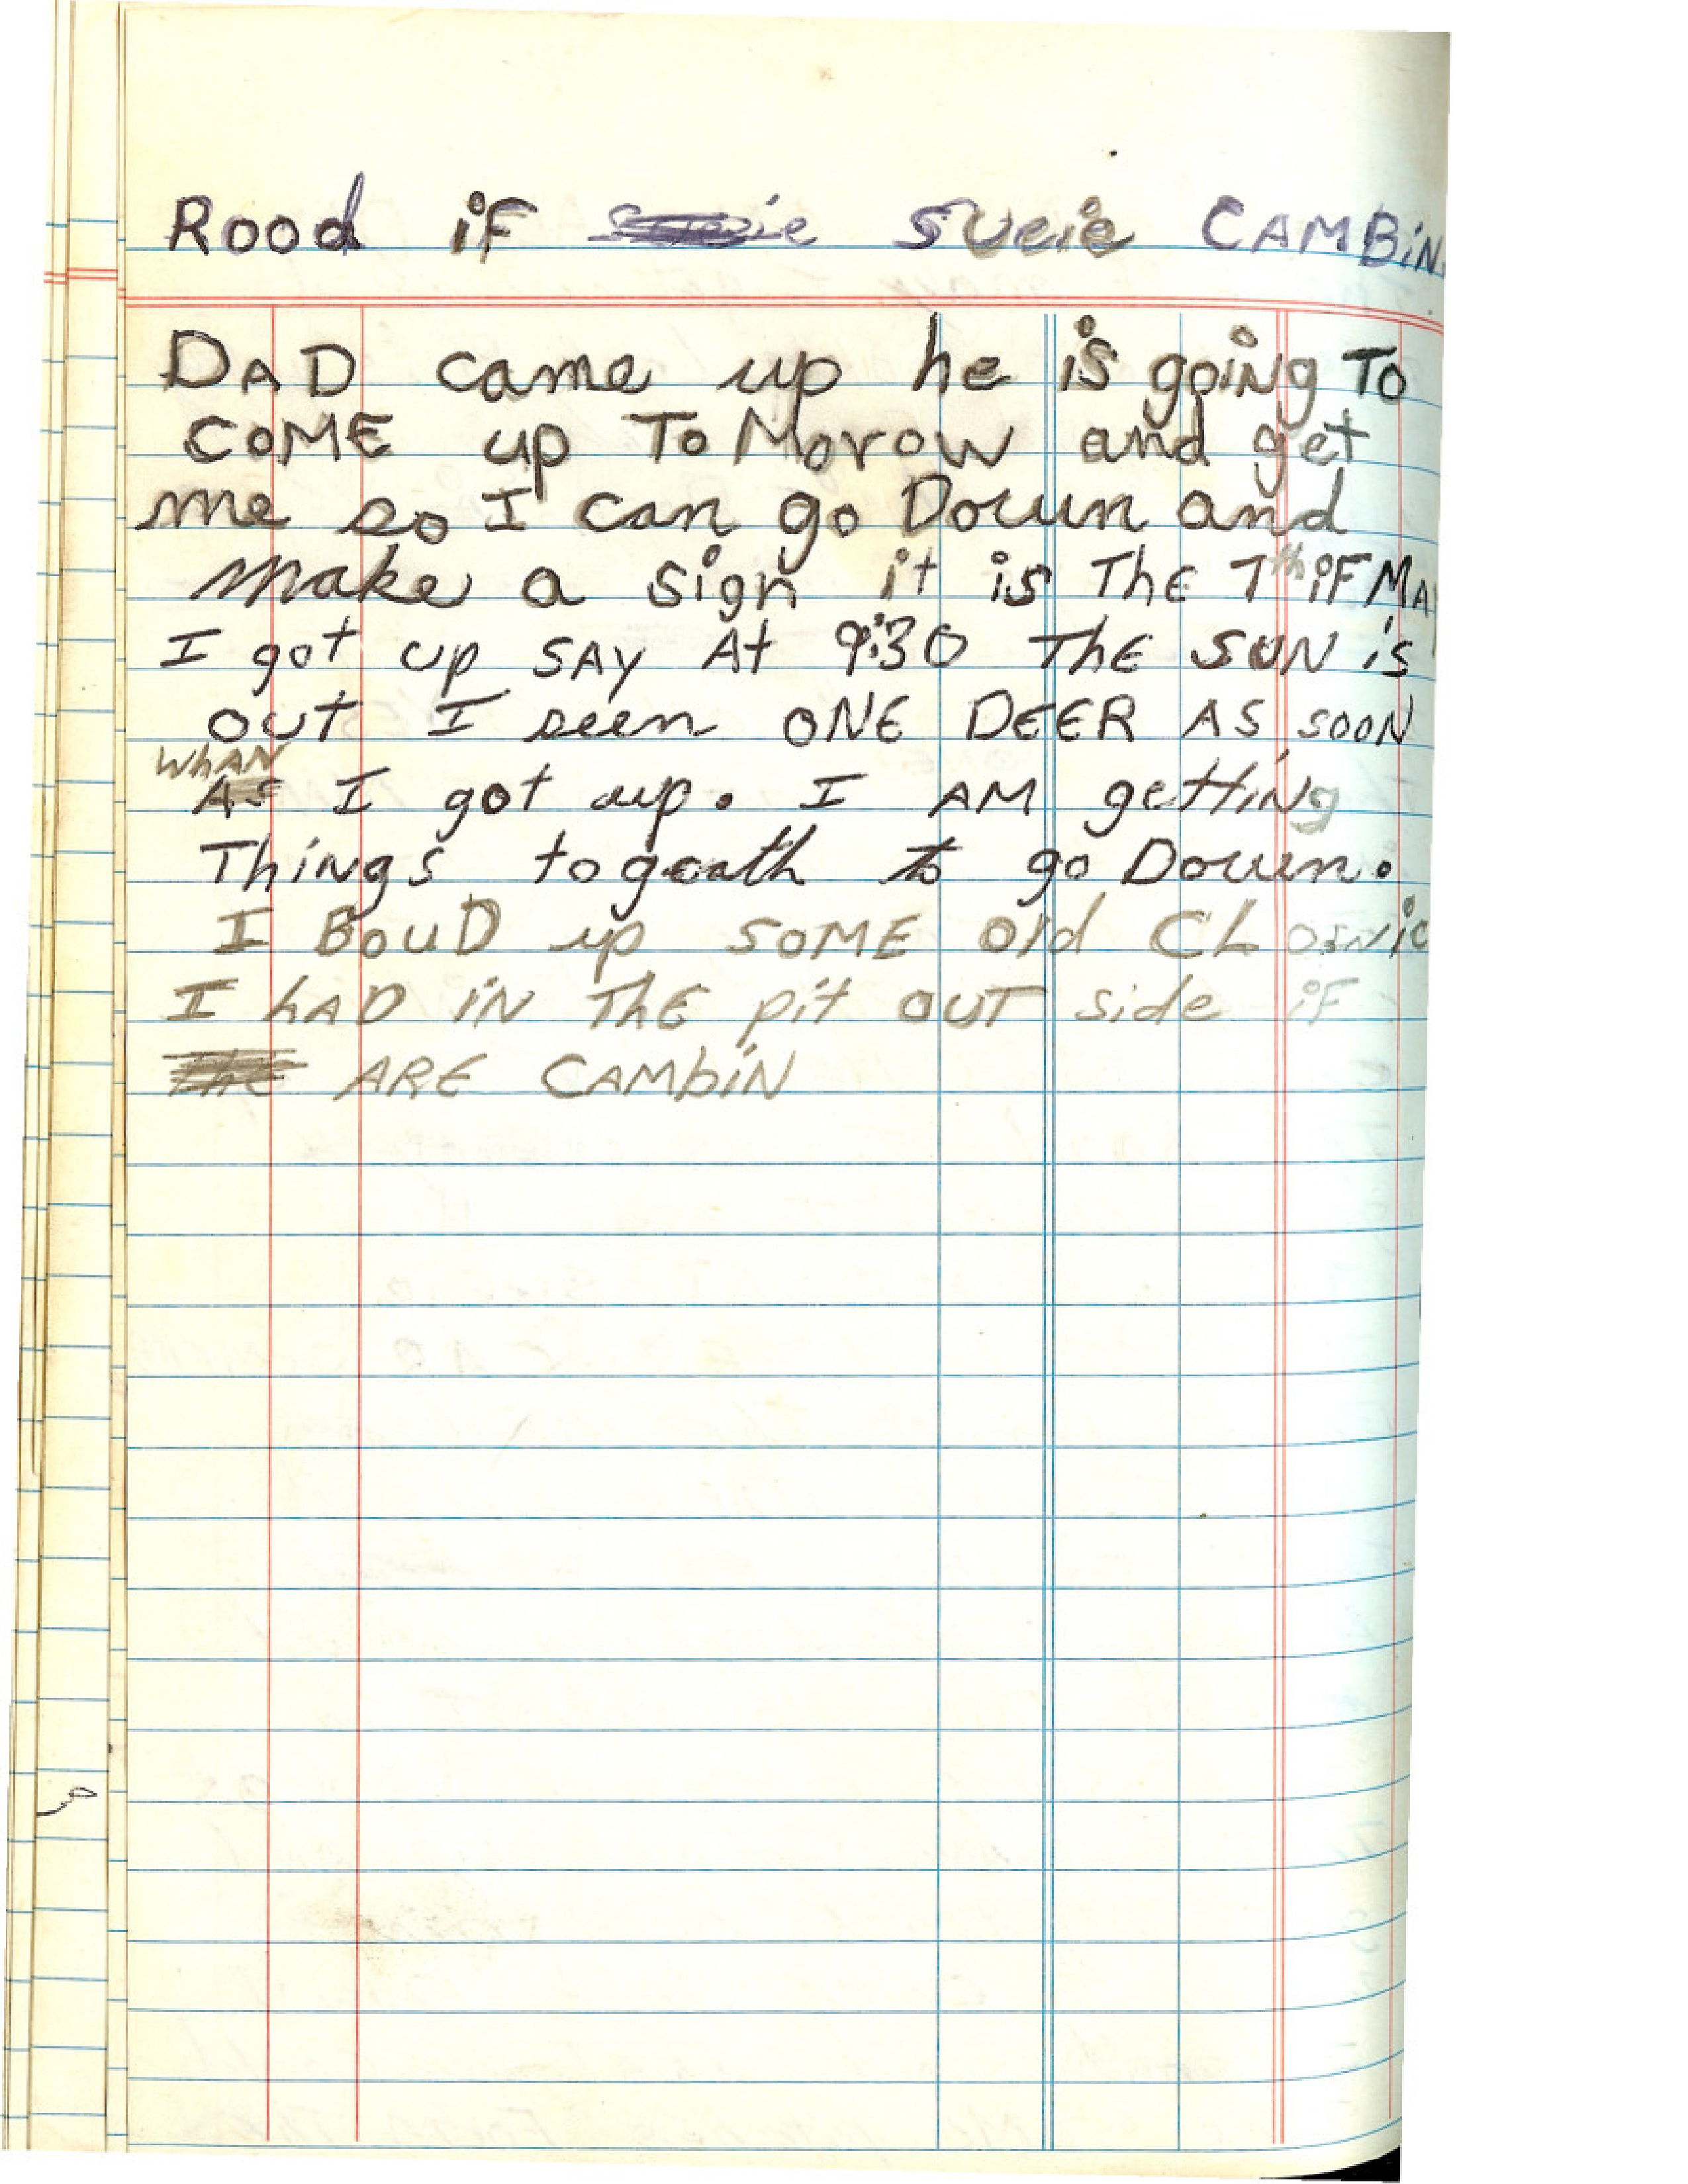 Rood iF Sueie CAMBiN
DAD came up he is going To
COME up ToMorow and get
me so I can go Down and
Make a sign it is The 7th iF MAy
I got up SAy At 9:30 The SUN is
out I seen ONE DEER AS SOON
WhAN
AS I got up. I AM getting
Things togeath to go Down.
I BouD up SOME old
I hAD iN ThE pit OUT side iF
The ARE CAMbiN